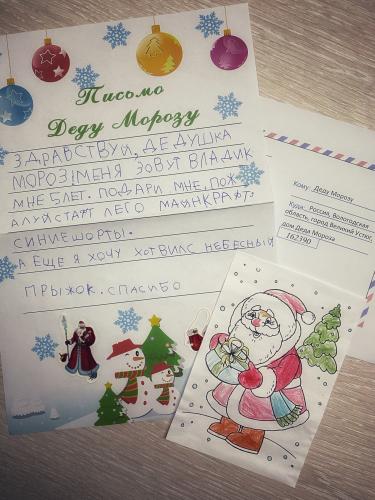 Письмо
Деду Морозу
ЗДРАВСТВУЙ, ДЕДУШКА
МОРОЗ!МЕНЯ ЗОВУТ ВЛАДИК
МНЕ 5ЛЕТ. ПОДАРИ МНЕ, ПОЖ-
АЛУЙСТАРТ ЛЕГО МАЙНКРАФТ.
СИНИЕ ШОРТЫ.
А ЕЩЕ Я ХОЧУ ХОТВИЛС НЕБЕСНЫЙ
ПРЫЖОК. СПАСИБО
Кому: Деду Морозу
Куда: Россия, Вологодская
область, город Великий Устюг,
дом Деда Мороза
162390